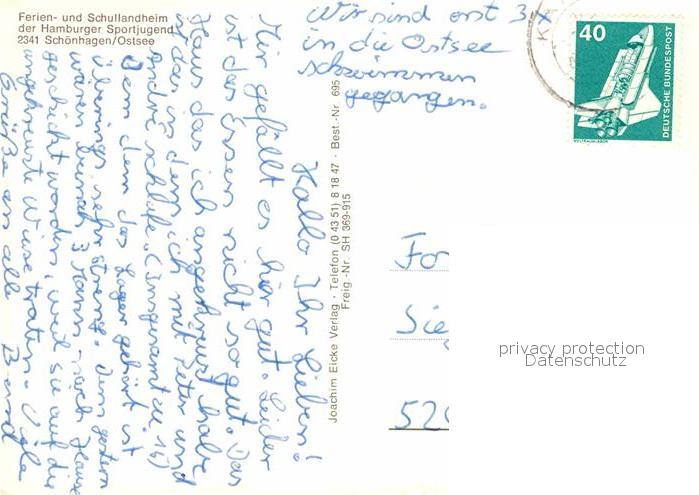 Ferien- und Schullandheim
der Hamburger Sportjugend
2341 Schönhagen/Ostsee
Wir sind erst 3x
in die Ostsee
schwimmen
gegangen.
40
DEUTSCHE BUNDESPOST
WELTRAUMLABOR
Hallo Ihr Lieben!
Mir gefällt es hier gut. Leider
ist das Essen nicht so gut. Das
Haus das ich angekreuzt habe
ist das in dem ich mit Peter und
André schlafe. (insgesamt 16)
Dem dem das Lager gehört ist
übrigens sehr streng. Denn gestern
wären beinah 3 Mann nach Hause
geschickt worden, weil sie auf die
ungeheuerste Wiese traten.
Grüße an alle Bernd
Joachim Eicke Verlag · Telefon (0 43 51) 8 18 47 · Best.-Nr. 695
Freig.-Nr. SH 369-915
Fa
Sie
520
privacy protection
Datenschutz